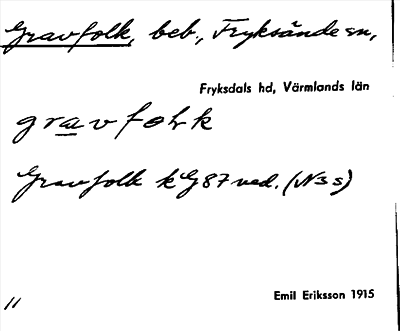 Gravfolk, beb., Fryksände sn,
Fryksdals hd, Värmlands län
gravfolk
Gravfolk kG87 ned. (N3s)
Emil Eriksson 1915
11